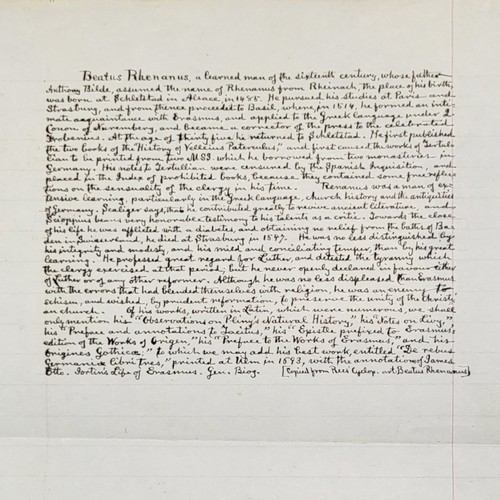 Beatus Rhenanus, a learned man of the sixteenth century, whose father
Anthony Bilde, assumed the name of Rhenanus from Rheinach, the place of his birth,
was born at Schletstad in Alsace, in 1485. He pursued his studies at Paris and
Strasburg, and from thence proceeded to Basil, where, in 1514, he formed an inti-
mate acquaintance with Erasmus, and applied to the Greek language under
Conon of Nuremberg, and became a corrector of the press to the celebrated
Frobenius. At the age of thirty five he returned to Schletstad. He first published
the two books of the "History of Velleius Paterculus," and first caused the works of Tertul-
lian to be printed from two MSS. which he borrowed from two monasteries in
Germany. His notes to Tertullian were censured by the Spanish Inquisition, and
placed in the Index of prohibited books, because they contained some free reflec-
tions on the sensuality of the clergy in his time. Renanus was a man of ex-
tensive learning, particularly in the Greek language, church history and the antiquities
of Germany. Scaliger says, that he contributed greatly to revive ancient literature, and
Scioppius bears very honorable testimony to his talents as a critic. Towards the close
of his life he was afflicted with a diabetes, and obtaining no relief from the baths of Ba
den in Suisserland, he died at Strasburg in 1547. He was no less distinguished by
his integrity and modesty, and his mild and conciliating temper, than by his great
learning. He professed great regard for Luther, and detested the tyranny which
the clergy exercised at that period, but he never openly declared in favour either
of Luther or of any other reformer. Although he was no less displeased than Erasmus
with the errors that had blended themselves with religion, he was an enemy to
schism, and wished, by prudent reformation, to preserve the unity of the Christi-
an church. Of his works, written in Latin, which were numerous, we shall
only mention his "Observations on Pliny's Natural History," his "Notes on Livy,"
his "Preface and annotations to Tacitus," his "Epistle prefixed to Erasmus'
edition of the Works of Origen," his "Preface to the Works of Erasmus," and his
"Origines Gothicæ," to which we may add his best work, entitled "De rebus
Germanicis libri tres," printed at Ulm in 1693, with the annotations of James
Otto. Jortin's Life of Erasmus. Gen. Biog. [Copied from Rees' Cyclop. art. Beatus Rhenanus]